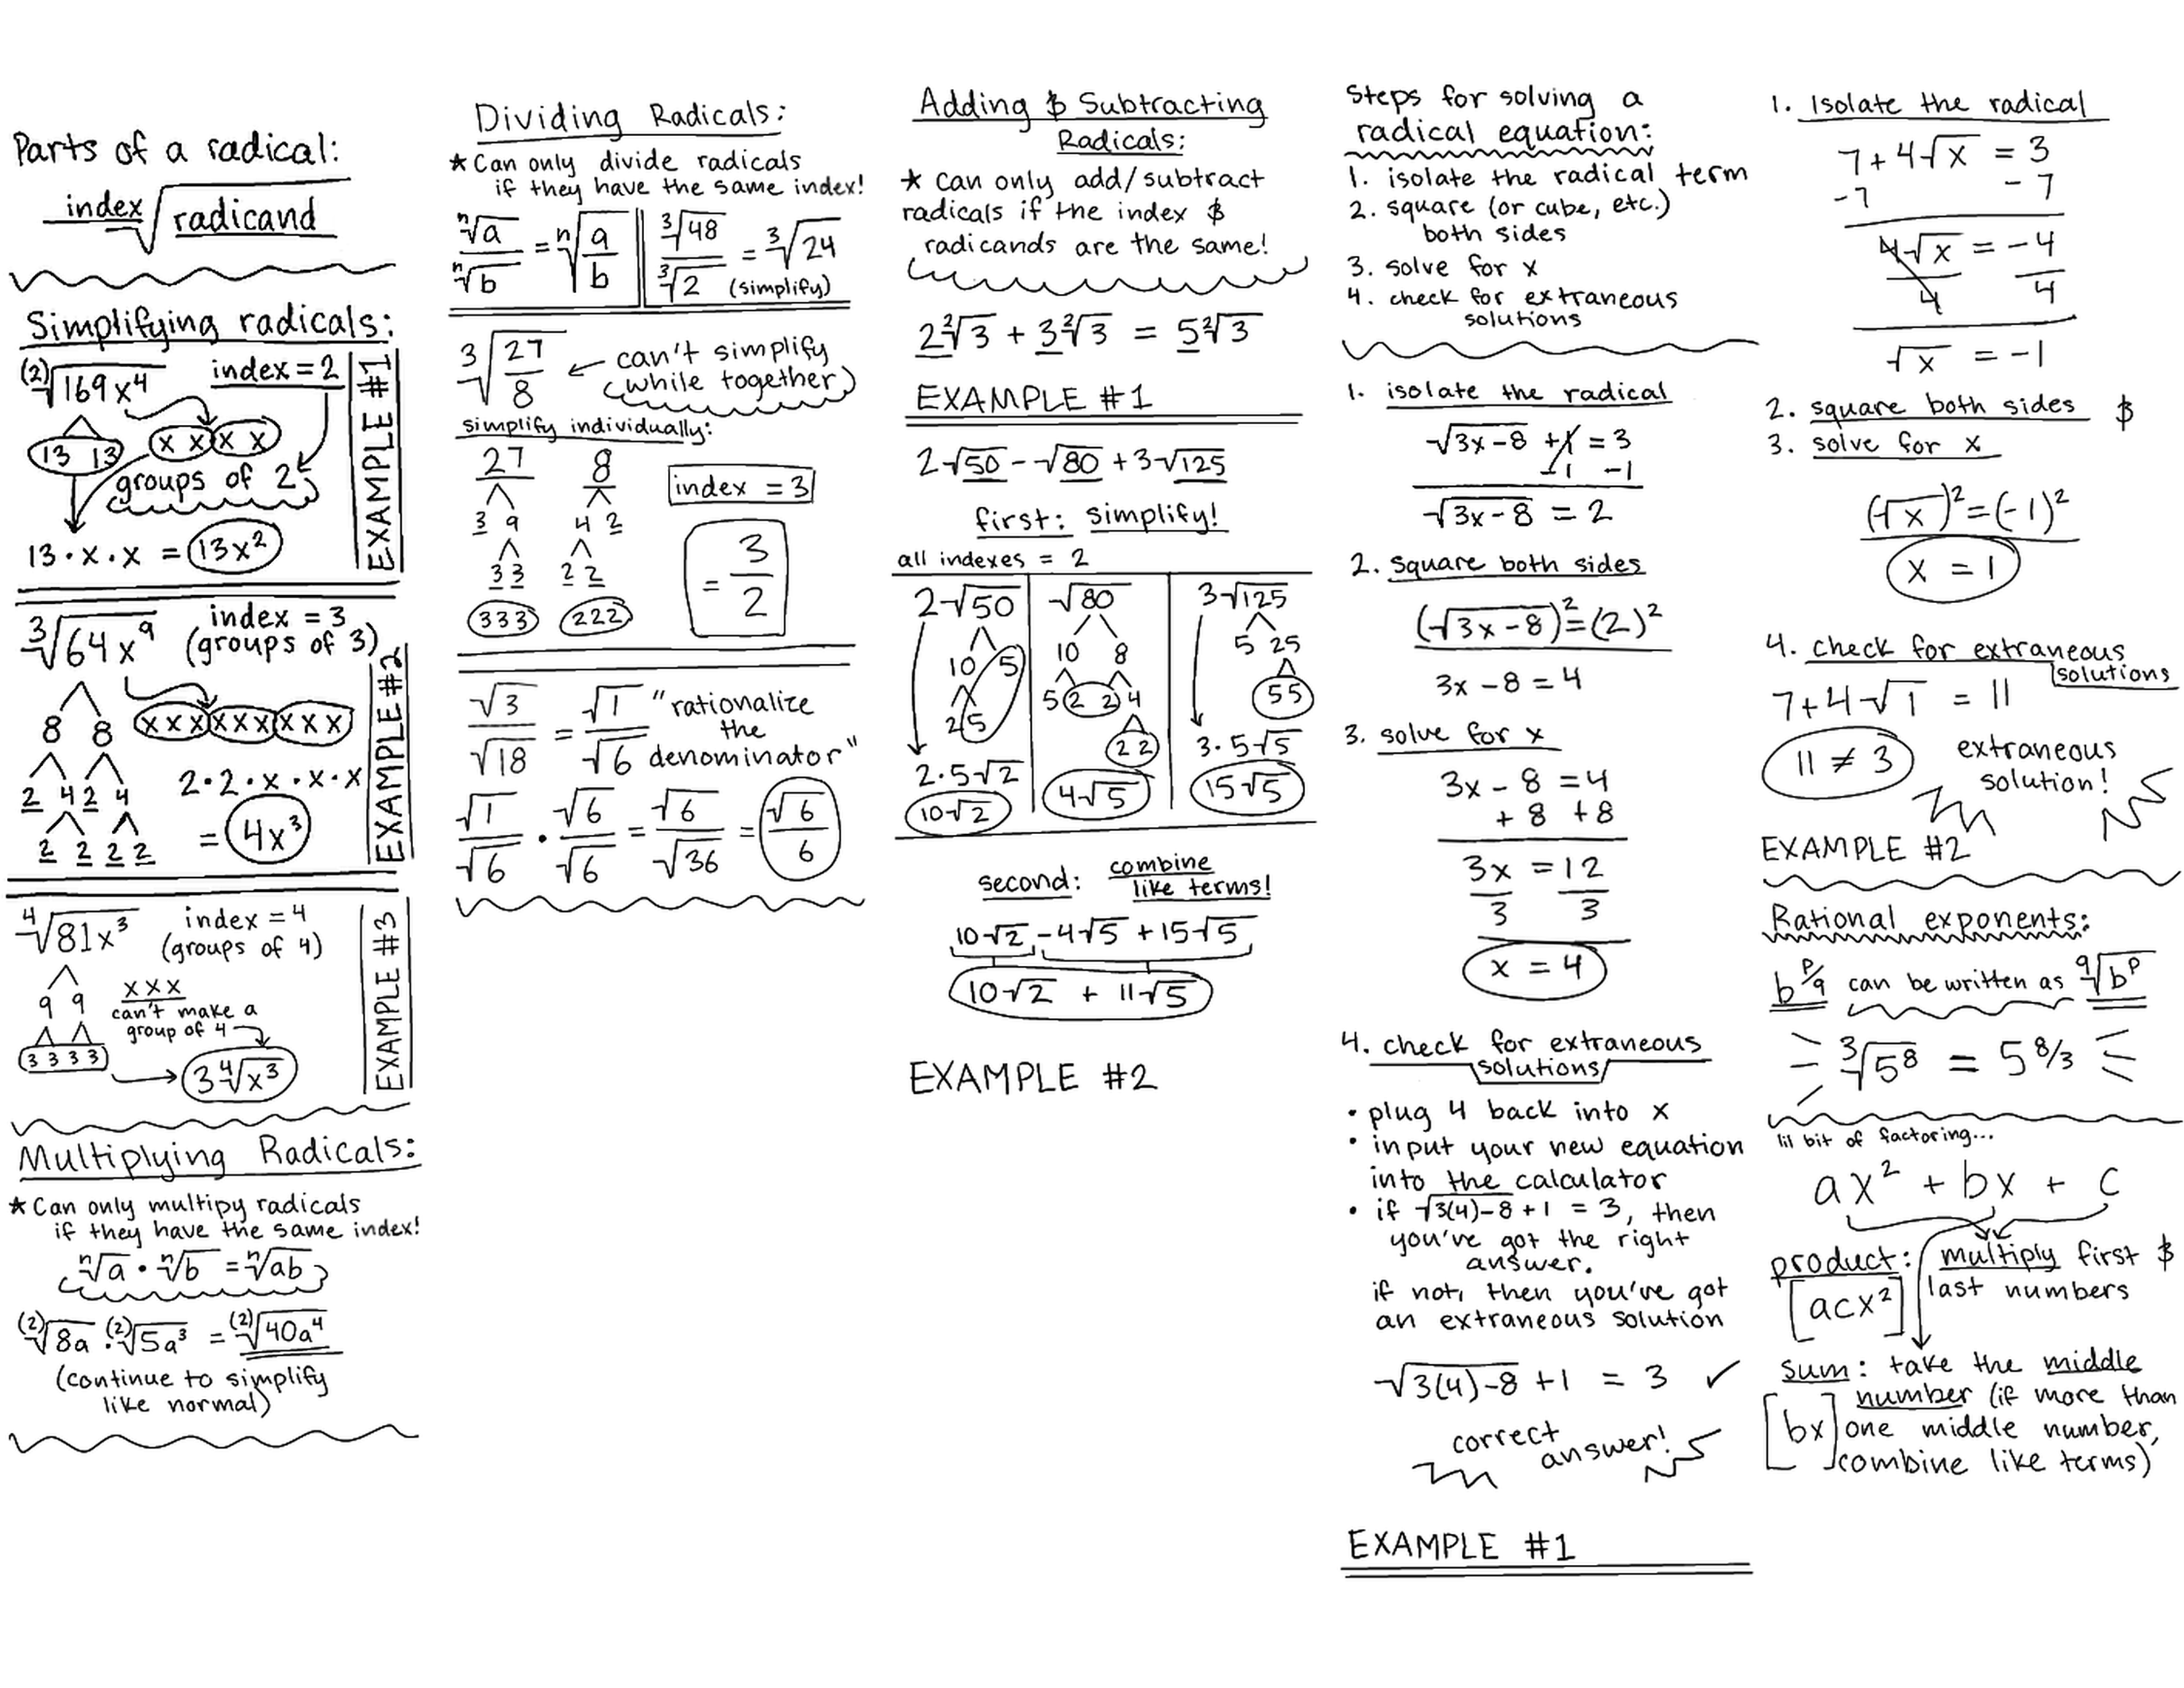 Parts of a radical:
index√radicand
Simplifying radicals:
(2)√169x⁴ index = 2
13 13 x x x x
groups of 2
13 · x · x = 13x²
EXAMPLE #1
³√64x⁹ index = 3
(groups of 3)
8 8 x x x x x x x x x
2 4 2 4 2 · 2 · x · x · x
2 2 2 2 = 4x³
EXAMPLE #2
⁴√81x³ index = 4
(groups of 4)
9 9 x x x
can't make a
group of 4
3 3 3 3 3⁴√x³
EXAMPLE #3
Multiplying Radicals:
* Can only multipy radicals
if they have the same index!
ⁿ√a · ⁿ√b = ⁿ√ab
(2)√8a · (2)√5a³ = (2)√40a⁴
(continue to simplify
like normal)
Dividing Radicals:
* Can only divide radicals
if they have the same index!
ⁿ√a / ⁿ√b = ⁿ√(a/b) ³√48 / ³√2 = ³√24
(simplify)
³√(27/8) ← can't simplify
(while together)
simplify individually:
27 8
index = 3
3 9 4 2
3 3 2 2
333 222
= 3/2
√3/√18 = √1/√6 "rationalize
the
denominator"
√1/√6 · √6/√6 = √6/√36 = √6/6
Adding & Subtracting
Radicals:
* can only add/subtract
radicals if the index &
radicands are the same!
2²√3 + 3²√3 = 5²√3
EXAMPLE #1
2√50 - √80 + 3√125
first: simplify!
all indexes = 2
2√50 √80 3√125
10 5 10 8 5 25
2 5 5 2 2 4 5 5
2 2
2·5√2 3·5√5
10√2 4√5 15√5
second: combine
like terms!
10√2 - 4√5 + 15√5
10√2 + 11√5
EXAMPLE #2
Steps for solving a
radical equation:
1. isolate the radical term
2. square (or cube, etc.)
both sides
3. solve for x
4. check for extraneous
solutions
1. isolate the radical
√3x-8 + 1 = 3
-1 -1
√3x-8 = 2
2. square both sides
(√3x-8)² = (2)²
3x - 8 = 4
3. solve for x
3x - 8 = 4
+ 8 +8
3x = 12
3 3
x = 4
4. check for extraneous
solutions
• plug 4 back into x
• input your new equation
into the calculator
• if √3(4)-8 + 1 = 3, then
you've got the right
answer.
if not, then you've got
an extraneous solution
√3(4)-8 + 1 = 3 ✓
correct
answer!
EXAMPLE #1
1. Isolate the radical
7 + 4√x = 3
-7 - 7
4√x = -4
4 4
√x = -1
2. square both sides &
3. solve for x
(√x)² = (-1)²
x = 1
4. check for extraneous
solutions
7 + 4√1 = 11
11 ≠ 3 extraneous
solution!
EXAMPLE #2
Rational exponents:
b^p/q can be written as q√b^p
³√5⁸ = 5^8/3
lil bit of factoring...
ax² + bx + c
product: multiply first &
[acx²] last numbers
sum: take the middle
number (if more than
[bx] one middle number,
combine like terms)